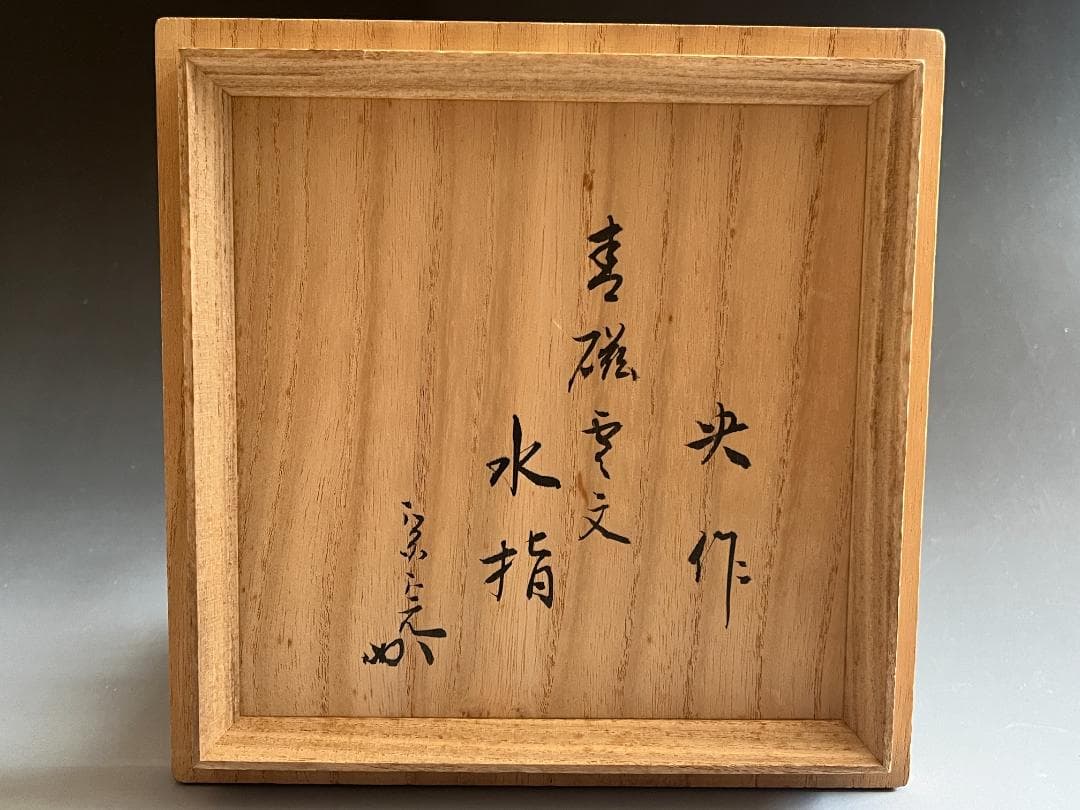 央作
青磁雲文
水指